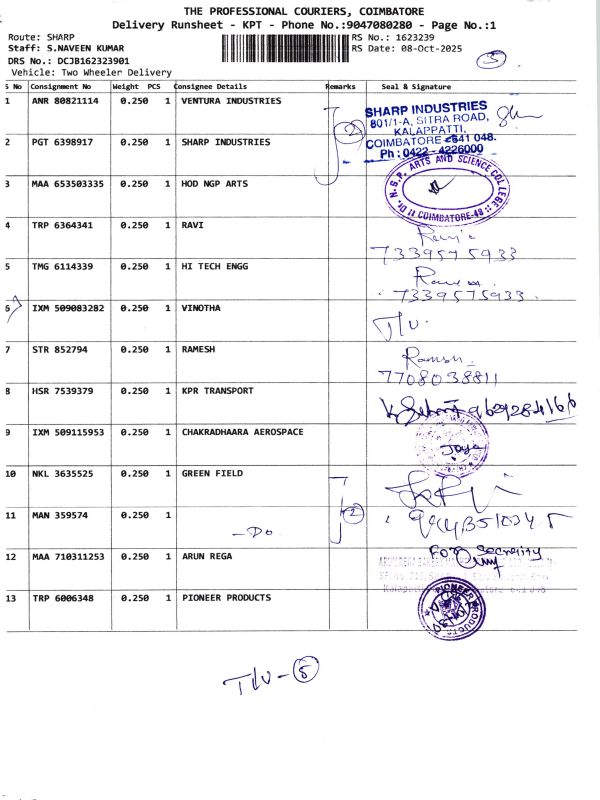 THE PROFESSIONAL COURIERS, COIMBATORE
Delivery Runsheet - KPT - Phone No.:9047080280 - Page No.:1
Route: SHARP
Staff: S.NAVEEN KUMAR
DRS No.: DCJB162323901
Vehicle: Two Wheeler Delivery
RS No.: 1623239
RS Date: 08-Oct-2025
5
S No Consignment No Weight PCS Consignee Details Remarks Seal & Signature
1 ANR 80821114 0.250 1 VENTURA INDUSTRIES
2
SHARP INDUSTRIES
801/1-A, SITRA ROAD,
KALAPPATTI,
COIMBATORE - 641 048.
Ph : 0422 - 4226000
2 PGT 6398917 0.250 1 SHARP INDUSTRIES
3 MAA 653503335 0.250 1 HOD NGP ARTS
Dr. N.G.P. ARTS AND SCIENCE COLLEGE
COIMBATORE-48
4 TRP 6364341 0.250 1 RAVI
7339575933
5 TMG 6114339 0.250 1 HI TECH ENGG
7339575933
6 IXM 509083282 0.250 1 VINOTHA
T/U
7 STR 852794 0.250 1 RAMESH
7708038811
8 HSR 7539379 0.250 1 KPR TRANSPORT
9 IXM 509115953 0.250 1 CHAKRADHAARA AEROSPACE
Jaya
10 NKL 3635525 0.250 1 GREEN FIELD
2
11 MAN 359574 0.250 1
- Do
12 MAA 710311253 0.250 1 ARUN REGA
For Security
13 TRP 6006348 0.250 1 PIONEER PRODUCTS
PIONEER PRODUCTS
T/U - 5